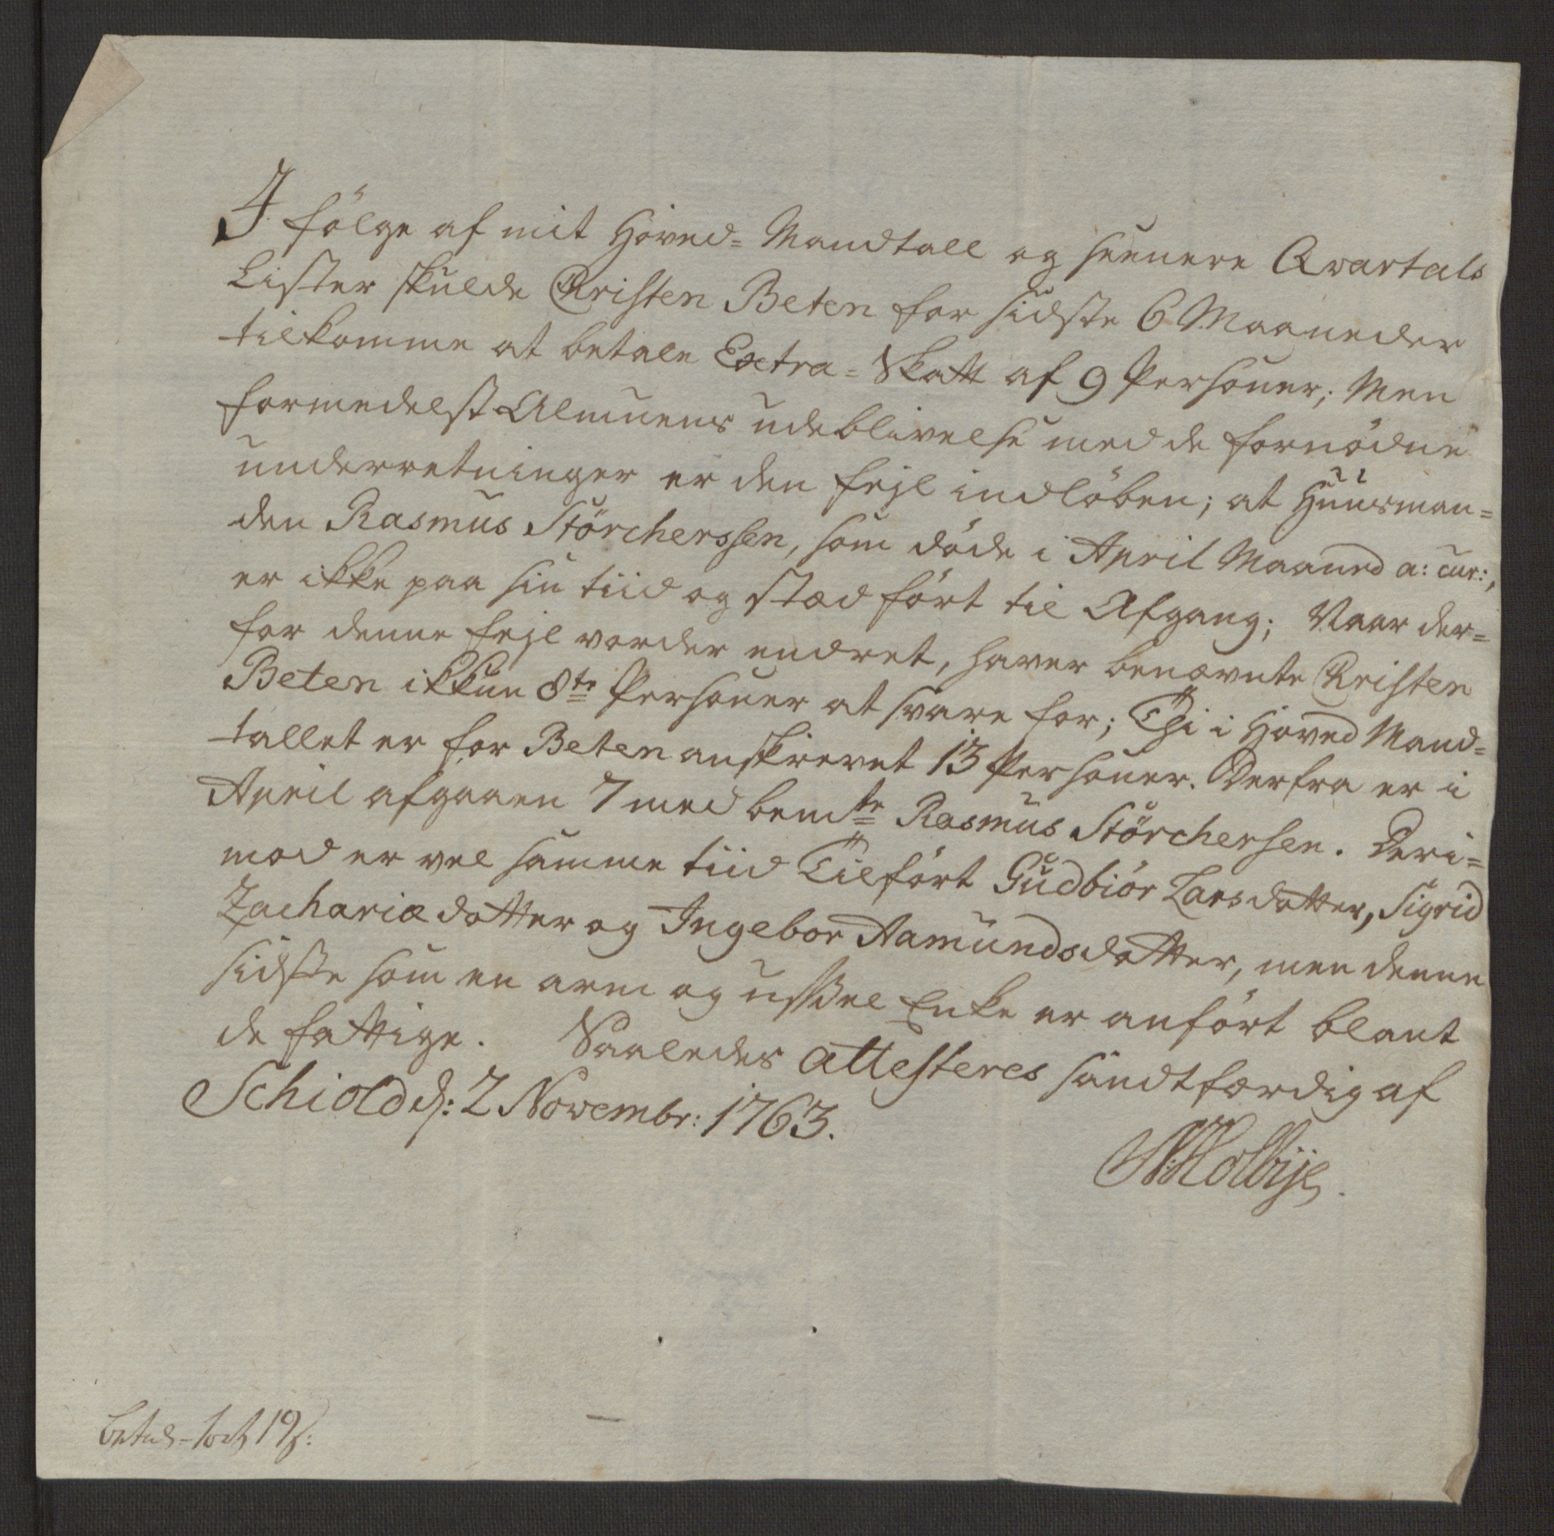 I følge af mit Hoved= Mandtall og seenere Qvartals
Lister skulde Christen Beten for sidste 6 Maaneder
tilkomme at betale Extra= Skatt af 9 Personer; Men
formedelst Almuens udeblivelse med de fornødne
underretninger er den feyl indløben; at Huusman=
den Rasmus Størchersen, som døde i April Maaned a: cur:,
er ikke paa sin tiid og stæd ført til Afgang; Naar der=
for denne feyl vorder endret, haver benævnte Christen
Beten ikkun 8te Personer at svare for; Thi i Hoved Mand=
tallet er for Beten anskrevet 13 Personer. Derfra er i
April afgaaen 7 med bemte Rasmus Størchersen. Deri=
mod er vel samme tiid Tilført Gudbiør Larsdatter, Sigrid
Zachariædatter og Ingebor Aamundsdatter, men denne
sidste som en arm og ussel Enke er anført blant
de fattige. Saaledes attesteres sandtfærdig af
Schiold d: 2 Novembr: 1763.
Holbye.
19s: